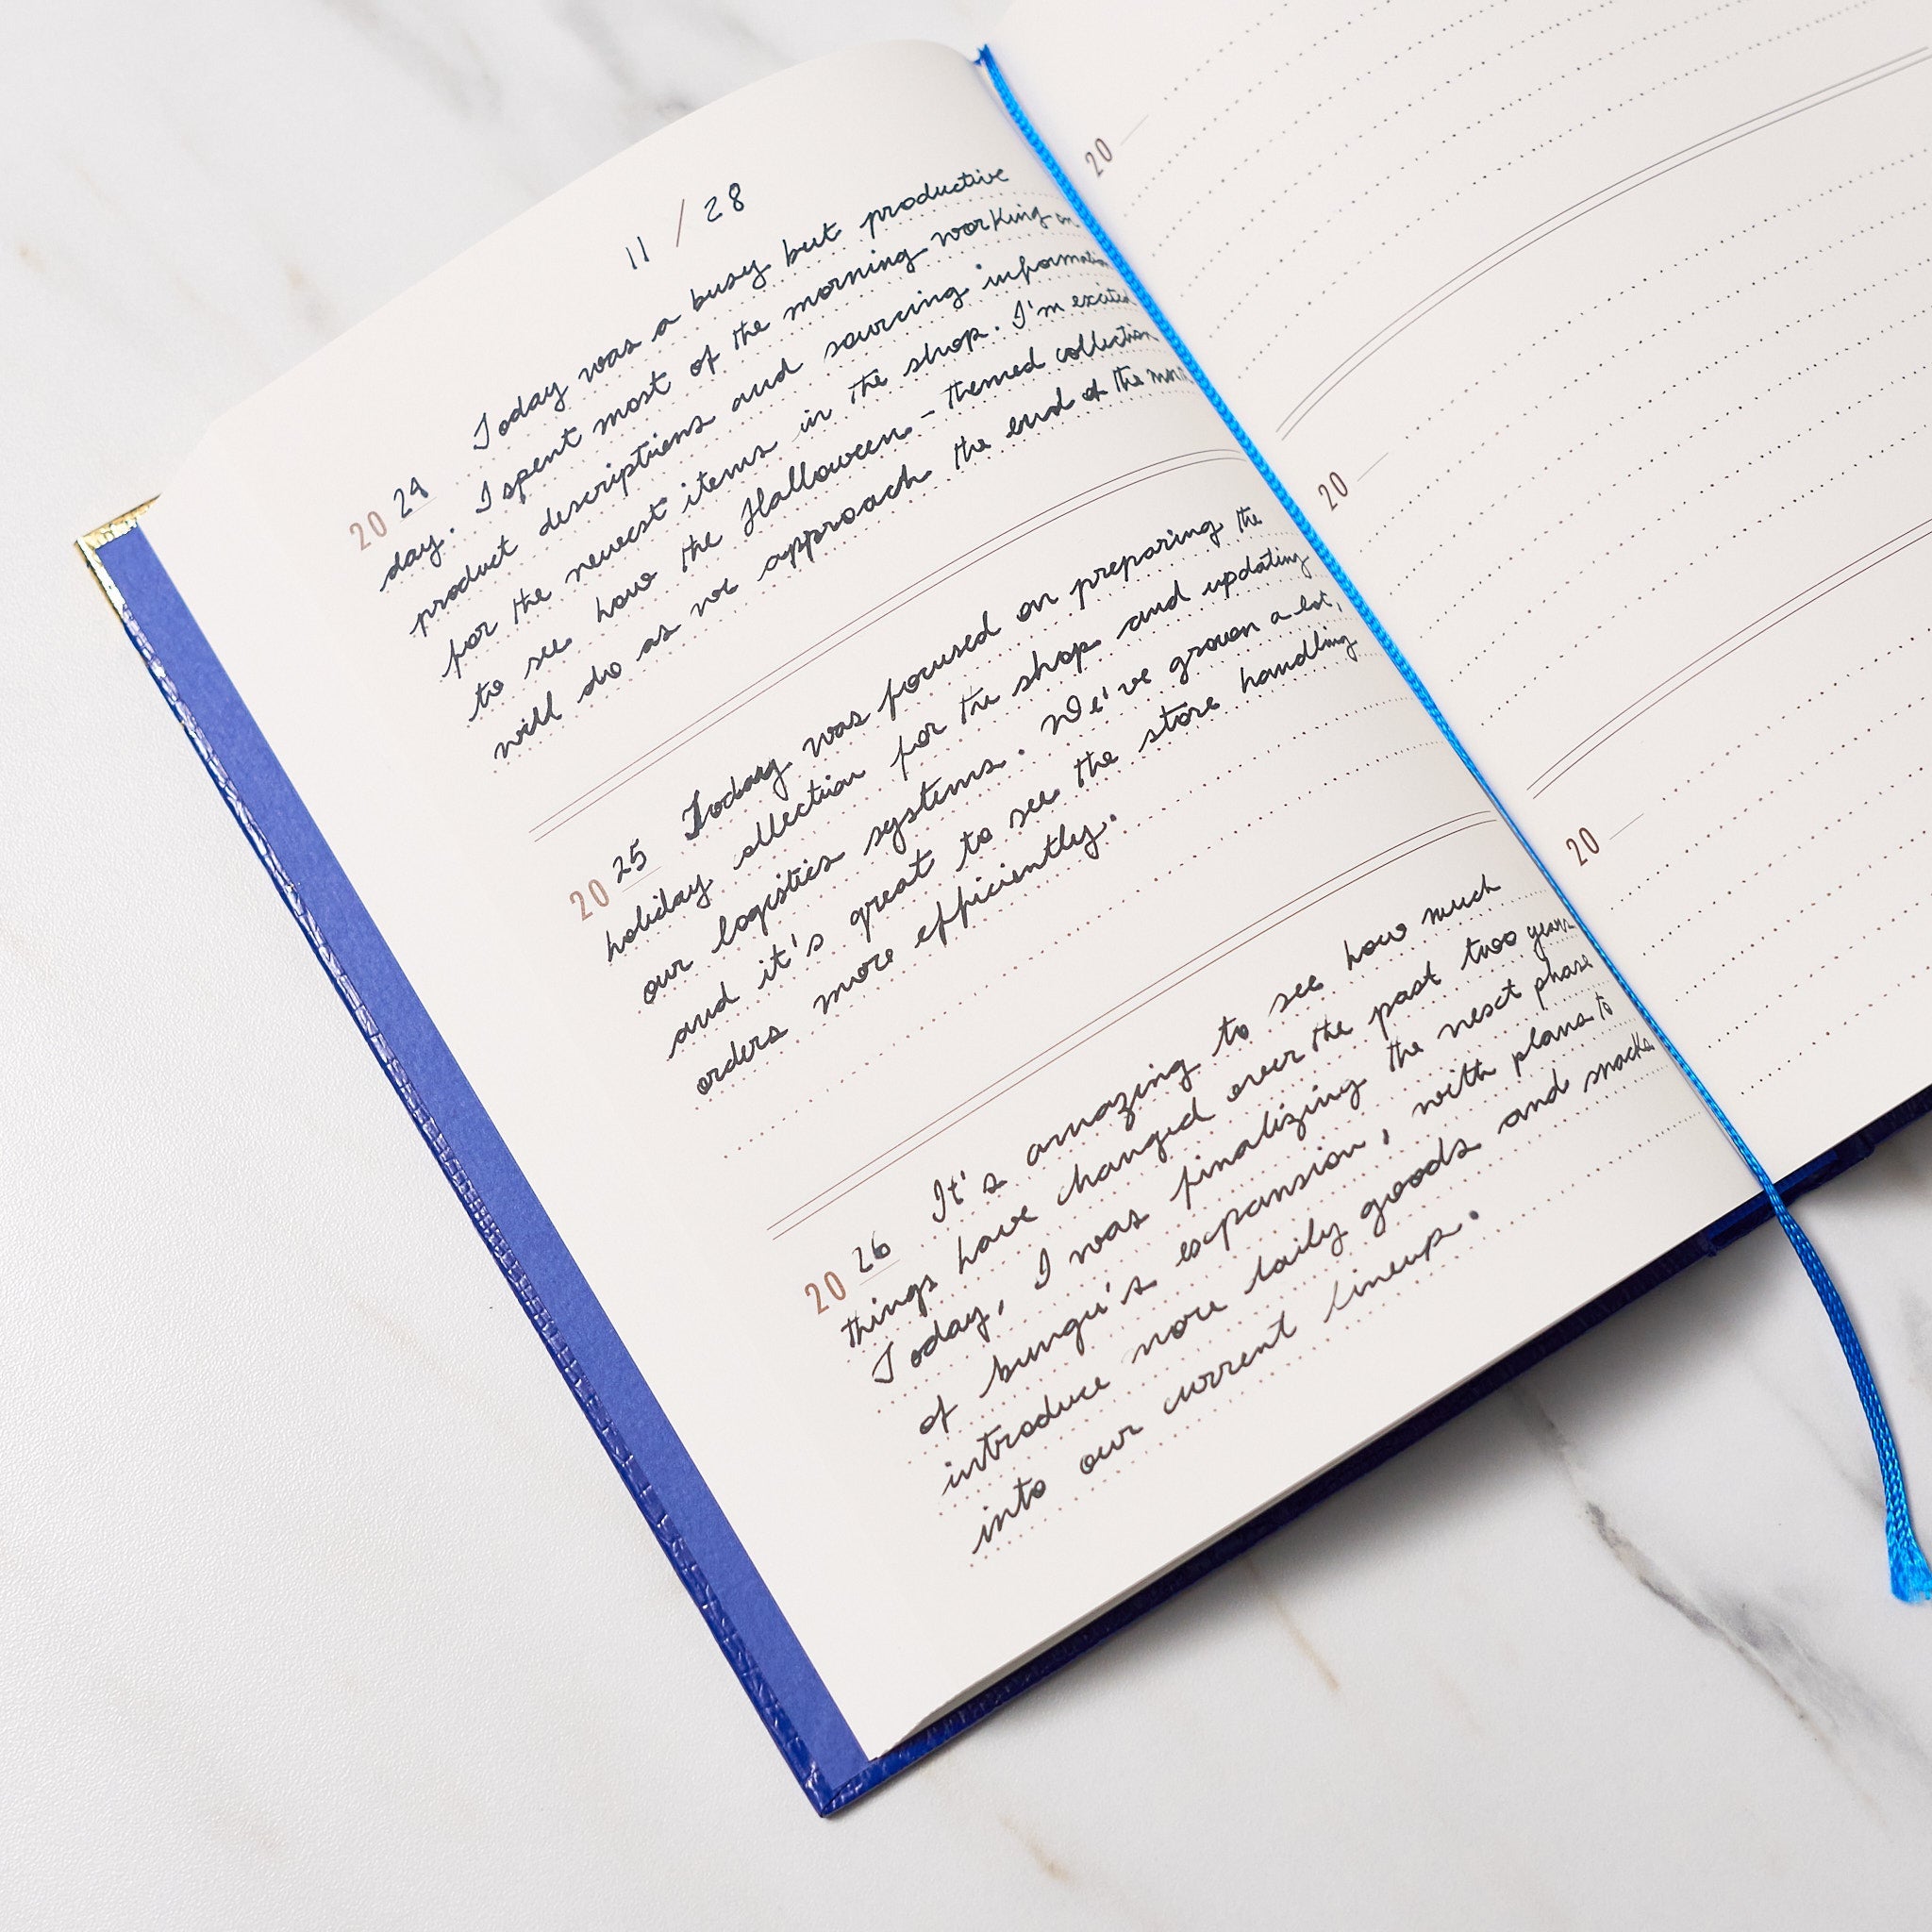 11 / 28
20 24 Today was a busy but productive
day. I spent most of the morning working on
product descriptions and sourcing information
for the newest items in the shop. I'm excited
to see how the Halloween-themed collection
will do as we approach the end of the
20 25 Today was focused on preparing the
holiday collection for the shop and updating
our logistics systems. We've grown a lot,
and it's great to see the store handling
orders more efficiently.
20 26 It's amazing to see how much
things have changed over the past two years.
Today, I was finalizing the next phase
of bungu's expansion, with plans to
introduce more daily goods and snacks
into our current lineup.
20
20
20